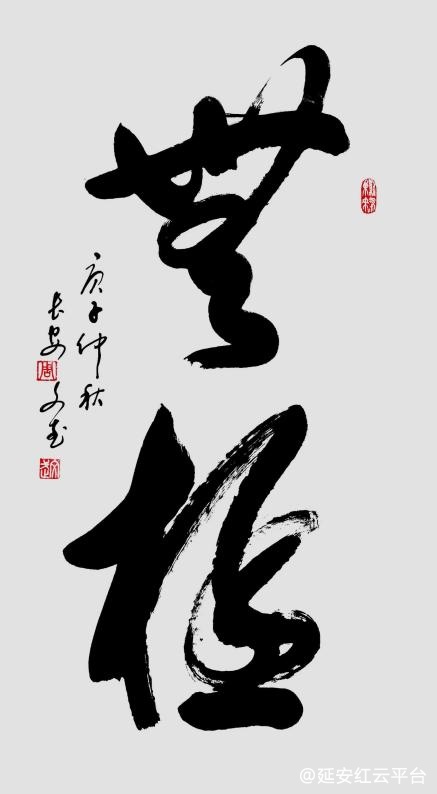 無極
庚子仲秋
長安
周
文
@延安红云平台